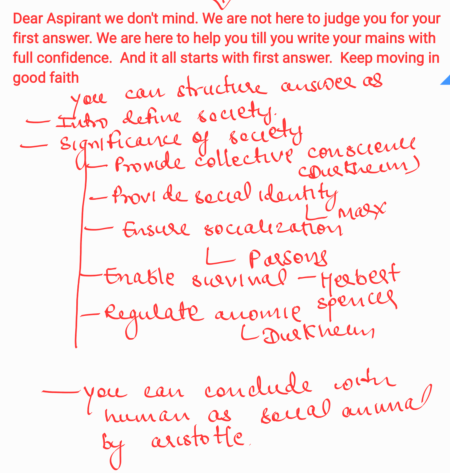 Dear Aspirant we don't mind. We are not here to judge you for your
first answer. We are here to help you till you write your mains with
full confidence. And it all starts with first answer. Keep moving in
good faith
you can structure answer as
- Intro define society.
- Significance of society
- Provide collective conscience
(Durkheim)
- Provide social identity
Marx
- Ensure socialization
Parsons
- Enable survival - Herbert
spencer
- Regulate anomie
Durkheim
- you can conclude with
human as social animal
by aristotle.